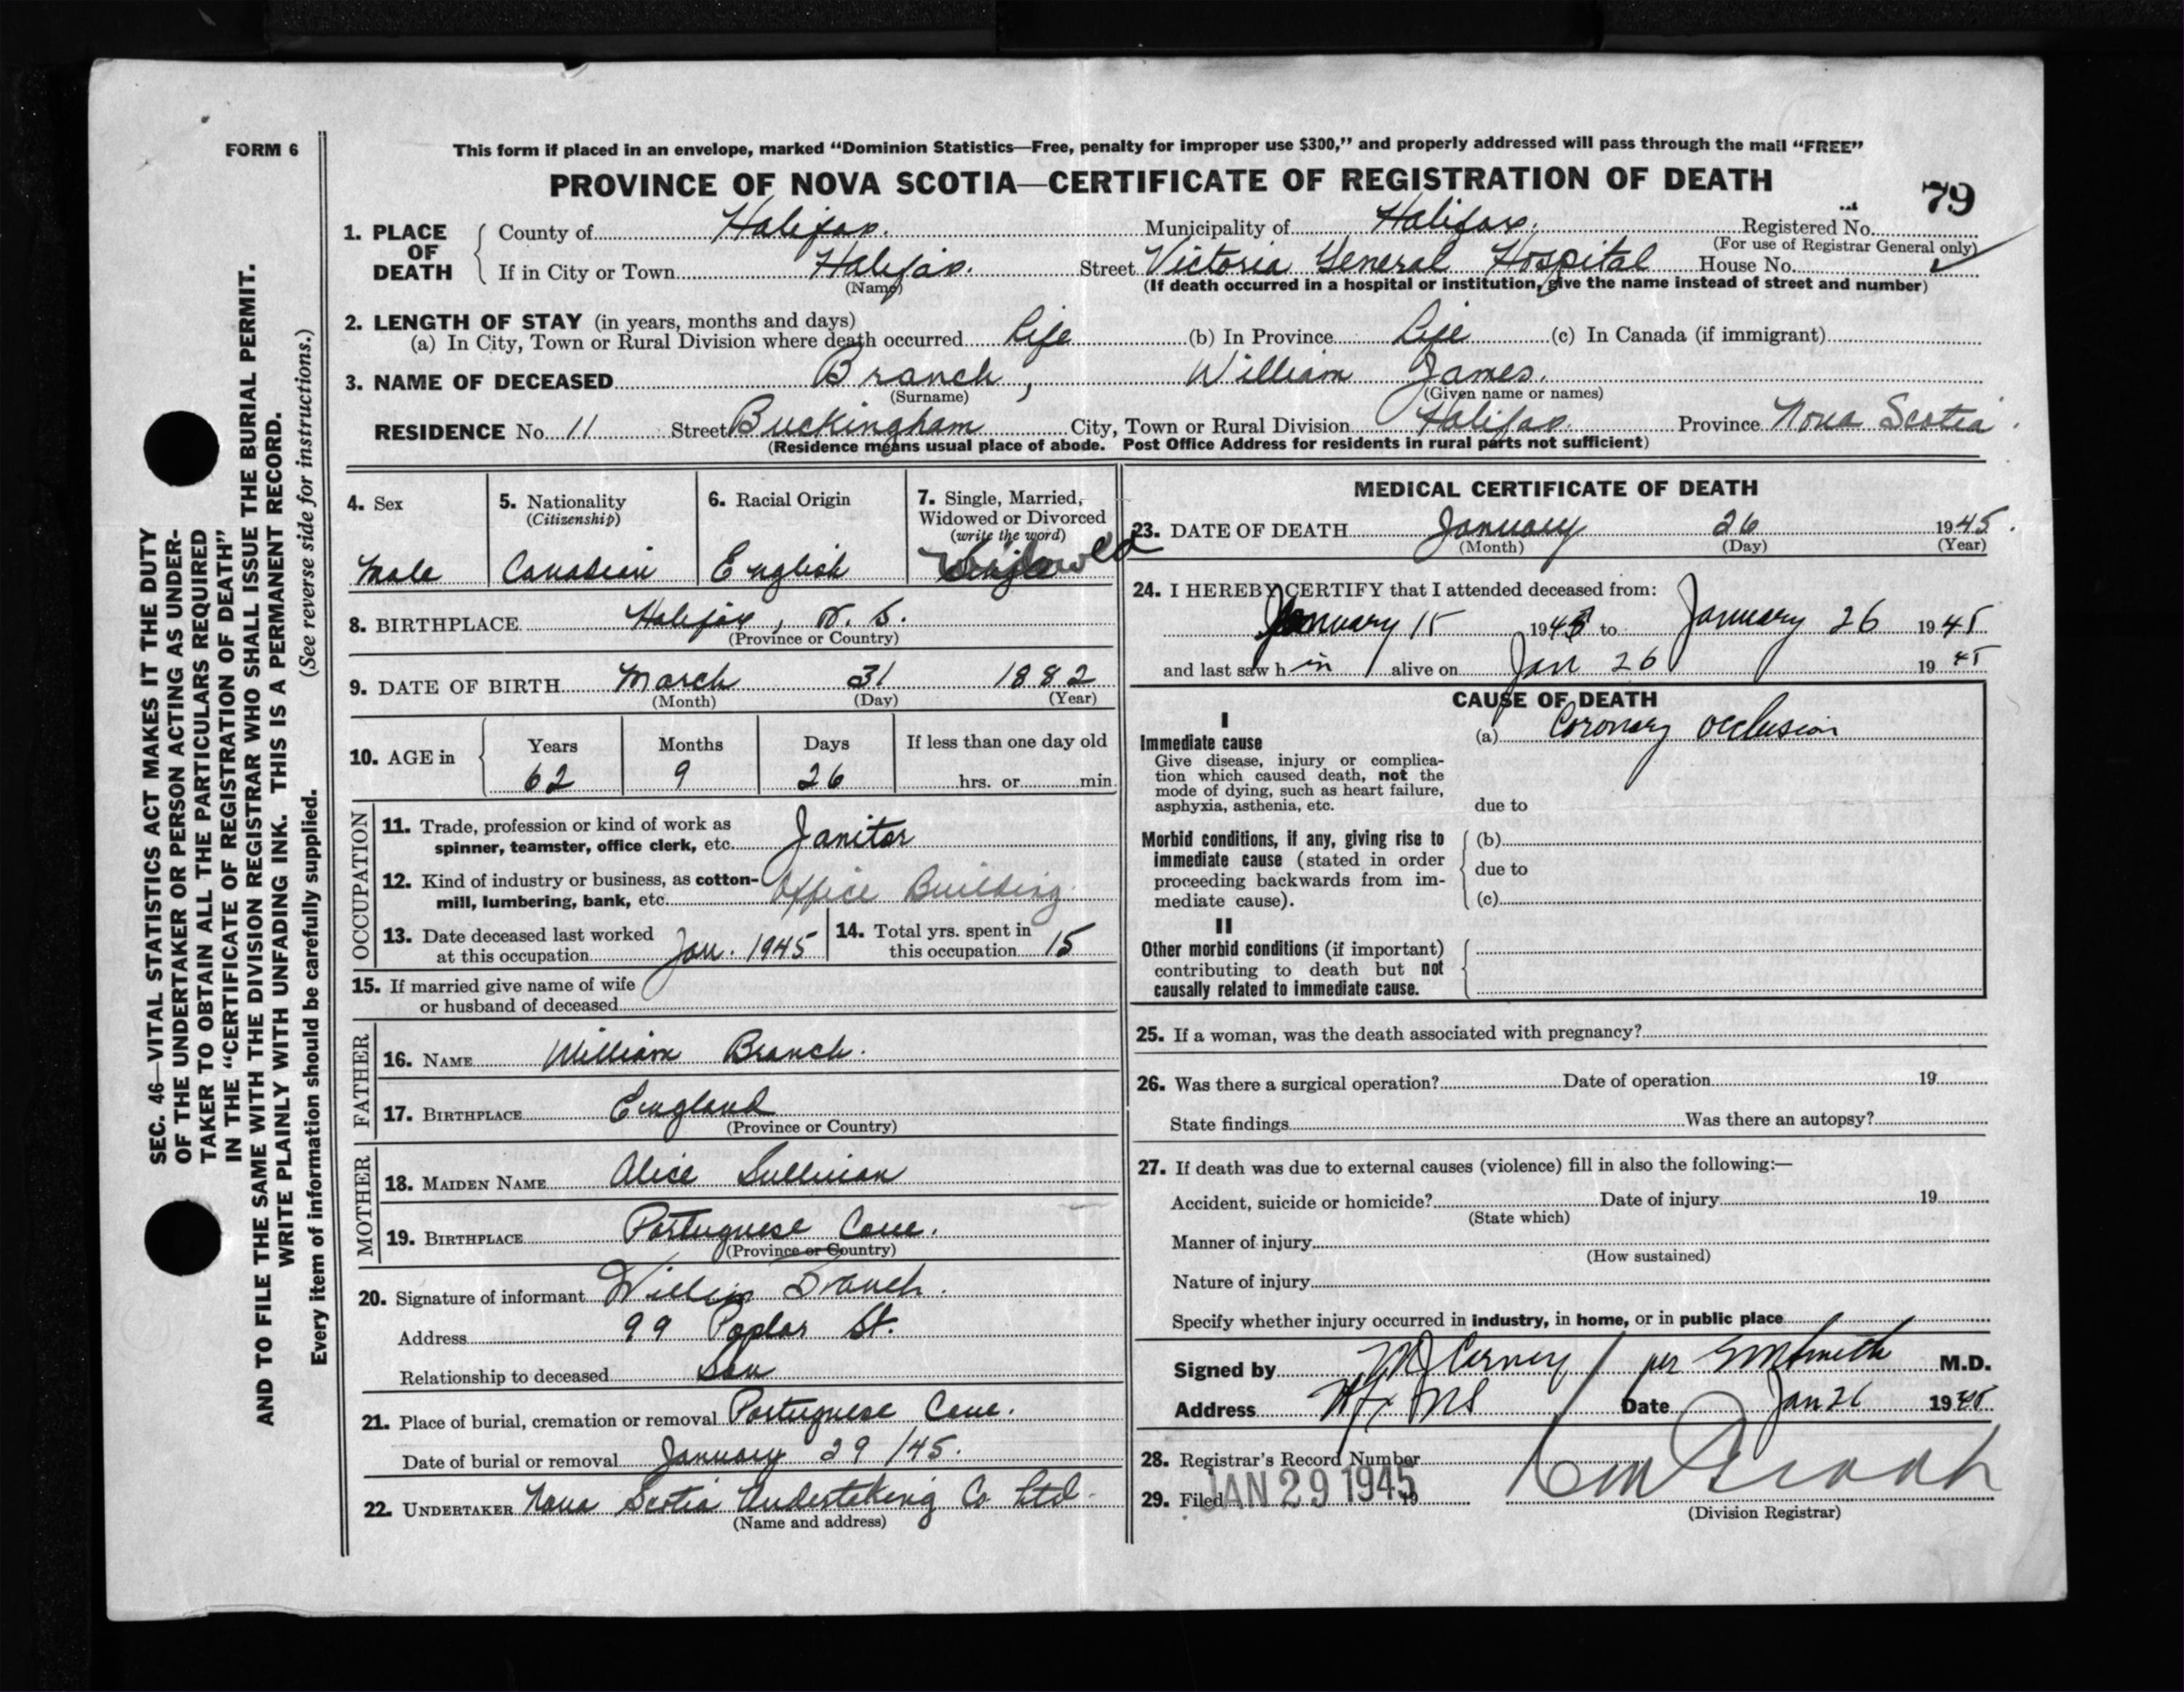 FORM 6
This form if placed in an envelope, marked “Dominion Statistics—Free, penalty for improper use $300,” and properly addressed will pass through the mail “FREE”
PROVINCE OF NOVA SCOTIA—CERTIFICATE OF REGISTRATION OF DEATH
79
1. PLACE OF DEATH County of Halifax. Municipality of Halifax. Registered No.
(For use of Registrar General only)
If in City or Town Halifax. Street Victoria General Hospital House No.
(Name) (If death occurred in a hospital or institution, give the name instead of street and number)
2. LENGTH OF STAY (in years, months and days)
(a) In City, Town or Rural Division where death occurred Life (b) In Province Life (c) In Canada (if immigrant)
3. NAME OF DECEASED Branch, William James.
(Surname) (Given name or names)
RESIDENCE No. 11 Street Buckingham City, Town or Rural Division Halifax. Province Nova Scotia.
(Residence means usual place of abode. Post Office Address for residents in rural parts not sufficient)
4. Sex
Male
5. Nationality
(Citizenship)
Canadian
6. Racial Origin
English
7. Single, Married,
Widowed or Divorced
(write the word)
Widowed
8. BIRTHPLACE Halifax, N. S.
(Province or Country)
9. DATE OF BIRTH March 31 1882
(Month) (Day) (Year)
10. AGE in Years Months Days If less than one day old
62 9 26 hrs. or min.
OCCUPATION
11. Trade, profession or kind of work as
spinner, teamster, office clerk, etc. Janitor
12. Kind of industry or business, as cotton-
mill, lumbering, bank, etc. Office Building.
13. Date deceased last worked
at this occupation Jan. 1945
14. Total yrs. spent in
this occupation 15
15. If married give name of wife
or husband of deceased
FATHER
16. NAME William Branch.
17. BIRTHPLACE England
(Province or Country)
MOTHER
18. MAIDEN NAME Alice Sullivan
19. BIRTHPLACE Portuguese Cove.
(Province or Country)
20. Signature of informant Branch.
Address 99 Poplar St.
Relationship to deceased Son
21. Place of burial, cremation or removal Portuguese Cove.
Date of burial or removal January 29/45.
22. UNDERTAKER Nova Scotia Undertaking Co. Ltd.
(Name and address)
MEDICAL CERTIFICATE OF DEATH
23. DATE OF DEATH January 26 1945.
(Month) (Day) (Year)
24. I HEREBY CERTIFY that I attended deceased from:
January 15 1945 to January 26 1945
and last saw h im alive on Jan 26 1945
CAUSE OF DEATH
I
Immediate cause
Give disease, injury or complica-
tion which caused death, not the
mode of dying, such as heart failure,
asphyxia, asthenia, etc.
(a) Coronary occlusion
due to
Morbid conditions, if any, giving rise to
immediate cause (stated in order
proceeding backwards from im-
mediate cause).
(b)
due to
(c)
II
Other morbid conditions (if important)
contributing to death but not
causally related to immediate cause.
25. If a woman, was the death associated with pregnancy?
26. Was there a surgical operation? Date of operation 19
State findings Was there an autopsy?
27. If death was due to external causes (violence) fill in also the following:—
Accident, suicide or homicide? Date of injury 19
(State which)
Manner of injury
(How sustained)
Nature of injury
Specify whether injury occurred in industry, in home, or in public place
Signed by Carney / per Smith M.D.
Address Hfx NS Date Jan 26 1945
28. Registrar's Record Number
29. Filed JAN 29 1945 19
(Division Registrar)
SEC. 46—VITAL STATISTICS ACT MAKES IT THE DUTY
OF THE UNDERTAKER OR PERSON ACTING AS UNDER-
TAKER TO OBTAIN ALL THE PARTICULARS REQUIRED
IN THE “CERTIFICATE OF REGISTRATION OF DEATH”
AND TO FILE THE SAME WITH THE DIVISION REGISTRAR WHO SHALL ISSUE THE BURIAL PERMIT.
WRITE PLAINLY WITH UNFADING INK. THIS IS A PERMANENT RECORD.
Every item of information should be carefully supplied. (See reverse side for instructions.)